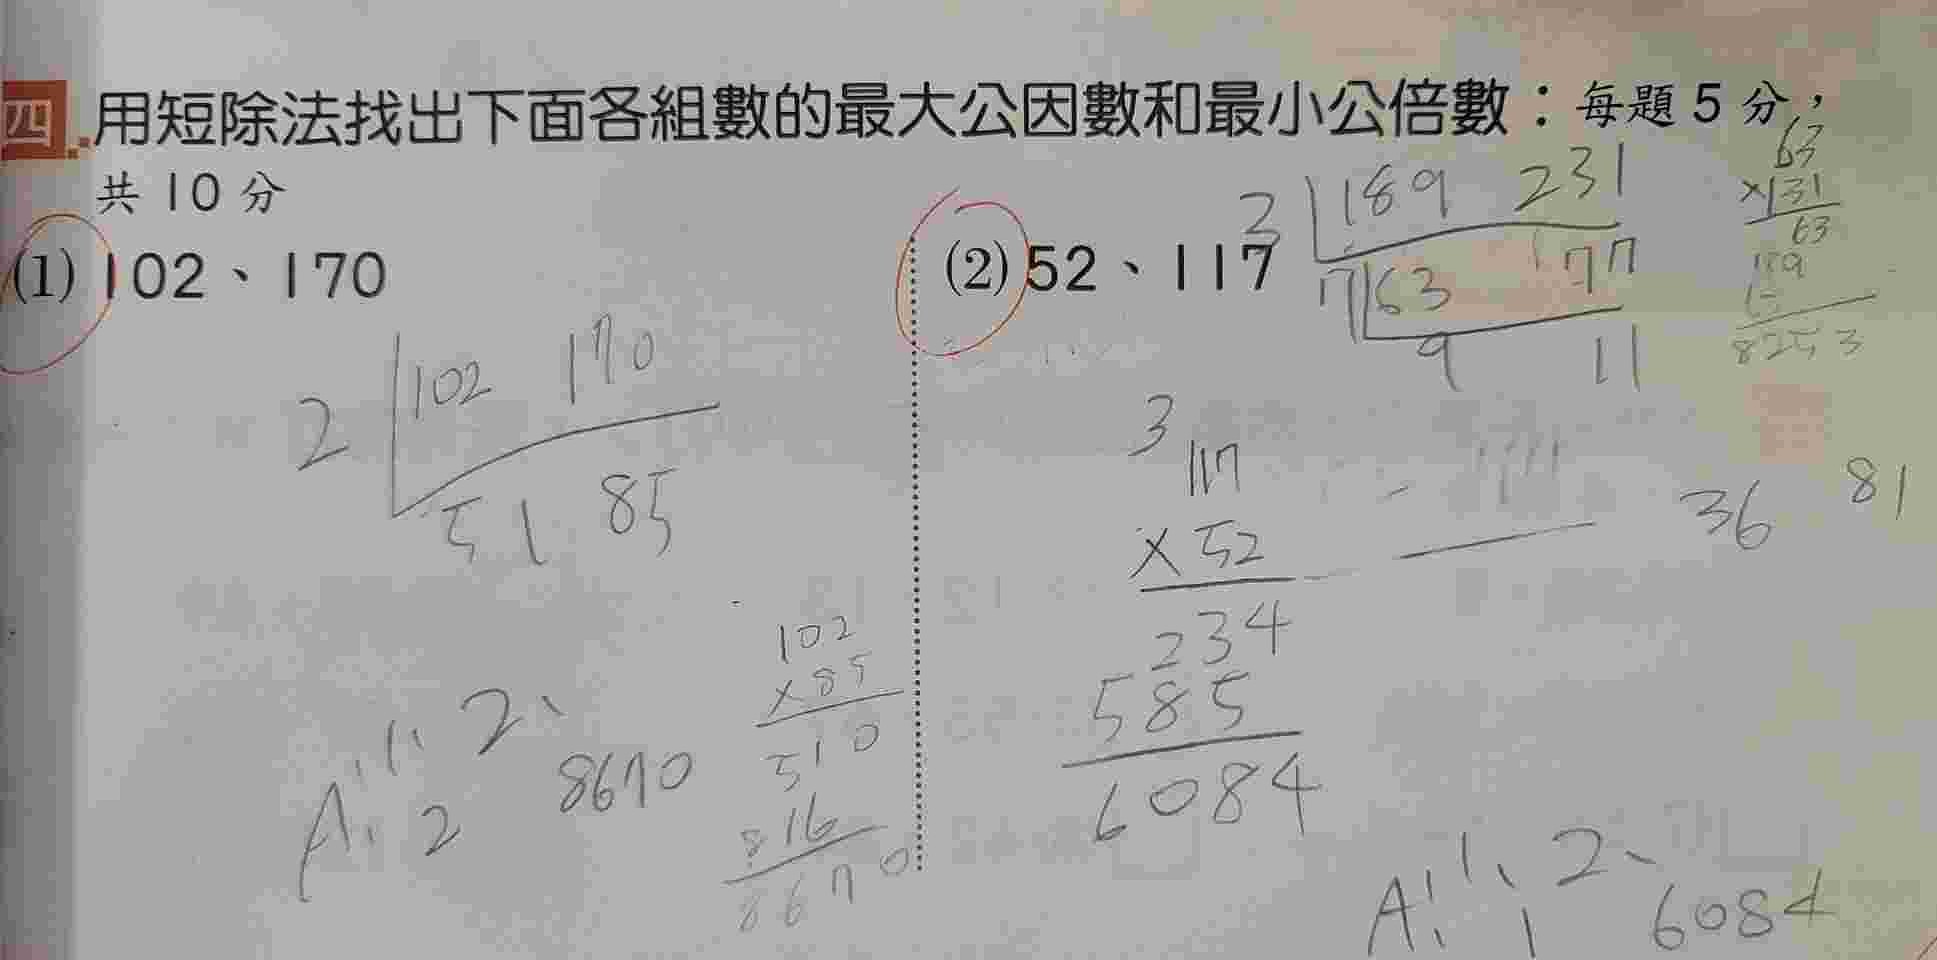 四.用短除法找出下面各組數的最大公因數和最小公倍數：每題5分，
共10分
(1) 102、170
2 102 170
51 85
102
×85
510
816
8670
A: 1、2、
2 8670
(2) 52、117
3 189 231
7 63 77
9 11
63
×131
63
189
8253
3
117
×52
234
585
6084
36 81
A: 1、2、
1 6084